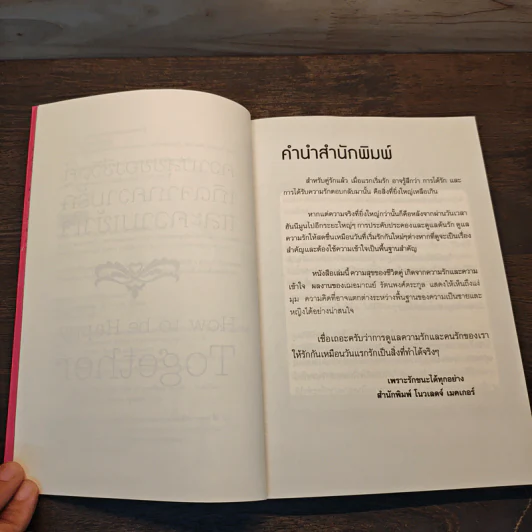 คำนำสำนักพิมพ์
สำหรับคู่รักแล้ว เมื่อแรกเริ่มรัก อาจรู้สึกว่า การได้รัก และ
การได้รับความรักตอบกลับมานั้น คือสิ่งที่ยิ่งใหญ่เหลือเกิน
หากแต่ความจริงที่ยิ่งใหญ่กว่านั้นก็คือหลังจากผ่านวันเวลา
อันนิมูนไปอีกระยะใหญ่ๆ การประคับประคองและดูแลต้นรัก ดูแล
ความรักให้สดชื่นเหมือนวันที่เริ่มรักกันใหม่ๆต่างหากที่ดูจะเป็นเรื่อง
สำคัญและต้องใช้ความเข้าใจเป็นพื้นฐานสำคัญ
หนังสือเล่มนี้ ความสุขของชีวิตคู่ เกิดจากความรักและความ
เข้าใจ ผลงานของเฌอมาณย์ รัตนพงศ์ตระกูล แสดงให้เห็นถึงแง่
มุม ความคิดที่อาจแตกต่างระหว่างพื้นฐานของความเป็นชายและ
หญิงได้อย่างน่าสนใจ
เชื่อเถอะครับว่าการดูแลความรักและคนรักของเรา
ให้รักกันเหมือนวันแรกรักเป็นสิ่งที่ทำได้จริงๆ
เพราะรักชนะได้ทุกอย่าง
สำนักพิมพ์ โนวเลดจ์ เมคเกอร์
ความสุขของชีวิตคู่
เกิดจากความรัก
และความเข้าใจ
How to be Happy
Together